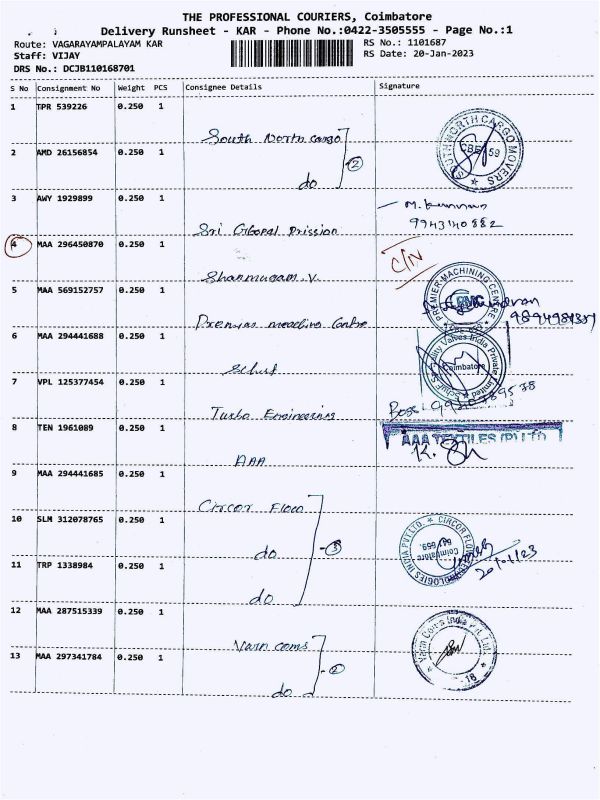 THE PROFESSIONAL COURIERS, Coimbatore
Delivery Runsheet - KAR - Phone No.:0422-3505555 - Page No.:1
Route: VAGARAYAMPALAYAM KAR
Staff: VIJAY
DRS No.: DCJB110168701
RS No.: 1101687
RS Date: 20-Jan-2023
S No Consignment No Weight PCS Consignee Details Signature
1 TPR 539226 0.250 1
South North cargo
2 AMD 26156854 0.250 1
do 2
SOUTH NORTH CARGO MOVERS
CBE 59
3 AWY 1929899 0.250 1
Sri Global
9943140882
4 MAA 296450870 0.250 1
Shanmugam.V
C/N
5 MAA 569152757 0.250 1
Machine Centre
PREMIER MACHINING CENTRE
PMC
6 MAA 294441688 0.250 1
Schuf
Valves India Private Limited
Coimbatore
7 VPL 125377454 0.250 1
Turbo Engineering
8 TEN 1961089 0.250 1
AAA
AAA TEXTILES (P) LTD
9 MAA 294441685 0.250 1
Circor Flow
10 SLM 312078765 0.250 1
do 3
CIRCOR FLOW TECHNOLOGIES INDIA PVT LTD
Coimbatore
641 659
20/01/23
11 TRP 1338984 0.250 1
do
12 MAA 287515339 0.250 1
Varn coms
13 MAA 297341784 0.250 1
do 2
Varin Coms India Pvt. Ltd.
18